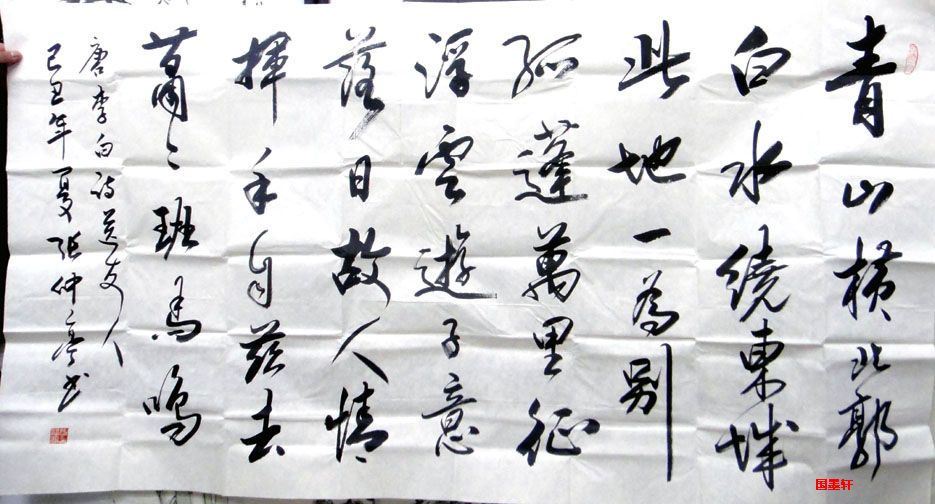 青山横北郭
白水繞東城
此地一為別
孤蓬萬里征
浮雲遊子意
落日故人情
揮手自茲去
蕭〻班馬鳴
唐李白詩送友人
己丑年夏張仲亭书
国墨轩